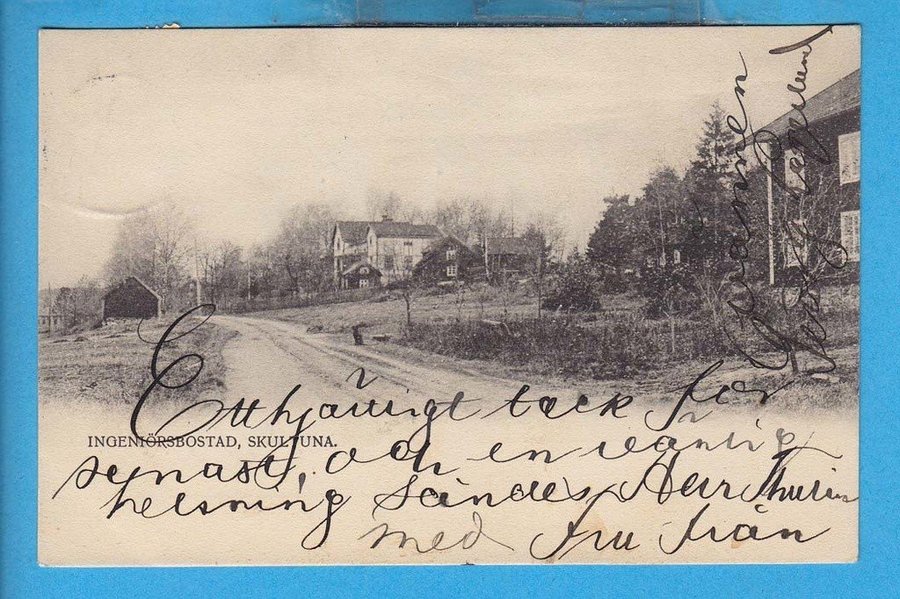 Ett hjärtligt tack för
INGENIÖRSBOSTAD, SKULTUNA.
senast, och en vänlig
helsning sändes Herr Thurin
med fru från